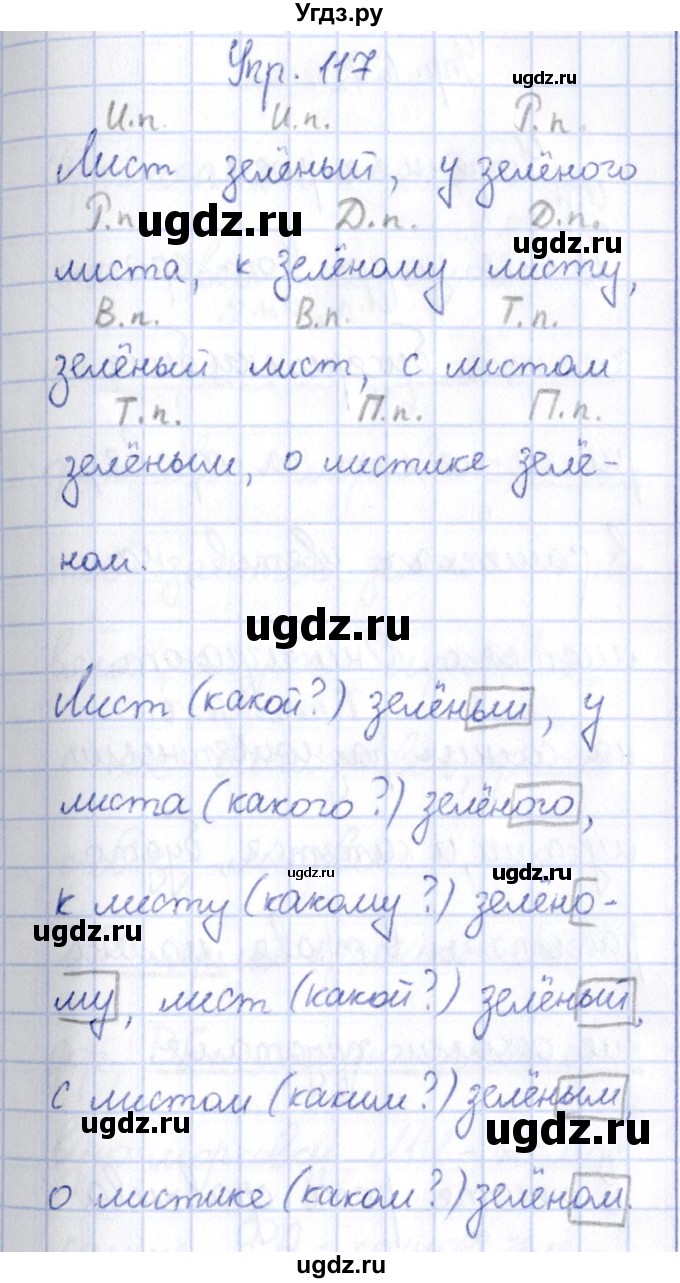 Угдз.ру
Упр. 117
ugdz.ru
И.п. И.п. Р.п.
Лист зелёный, у зелёного
ugdz.ru
Р.п. Д.п. Д.п.
ugdz.ru
листа, к зелёному листу,
В.п. В.п. Т.п.
зелёный лист, с листом
Т.п. П.п. П.п.
зелёным, о листике зелё-
ном.
ugdz.ru
Лист (какой?) зелёный, у
листа (какого?) зелёного,
ugdz.ru
ugdz.ru
к листу (какому?) зелёно-
ugdz.ru
му, лист (какой?) зелёный,
с листом (каким?) зелёным,
ugdz.ru
ugdz.ru
о листике (каком?) зелёном.
ugdz.ru